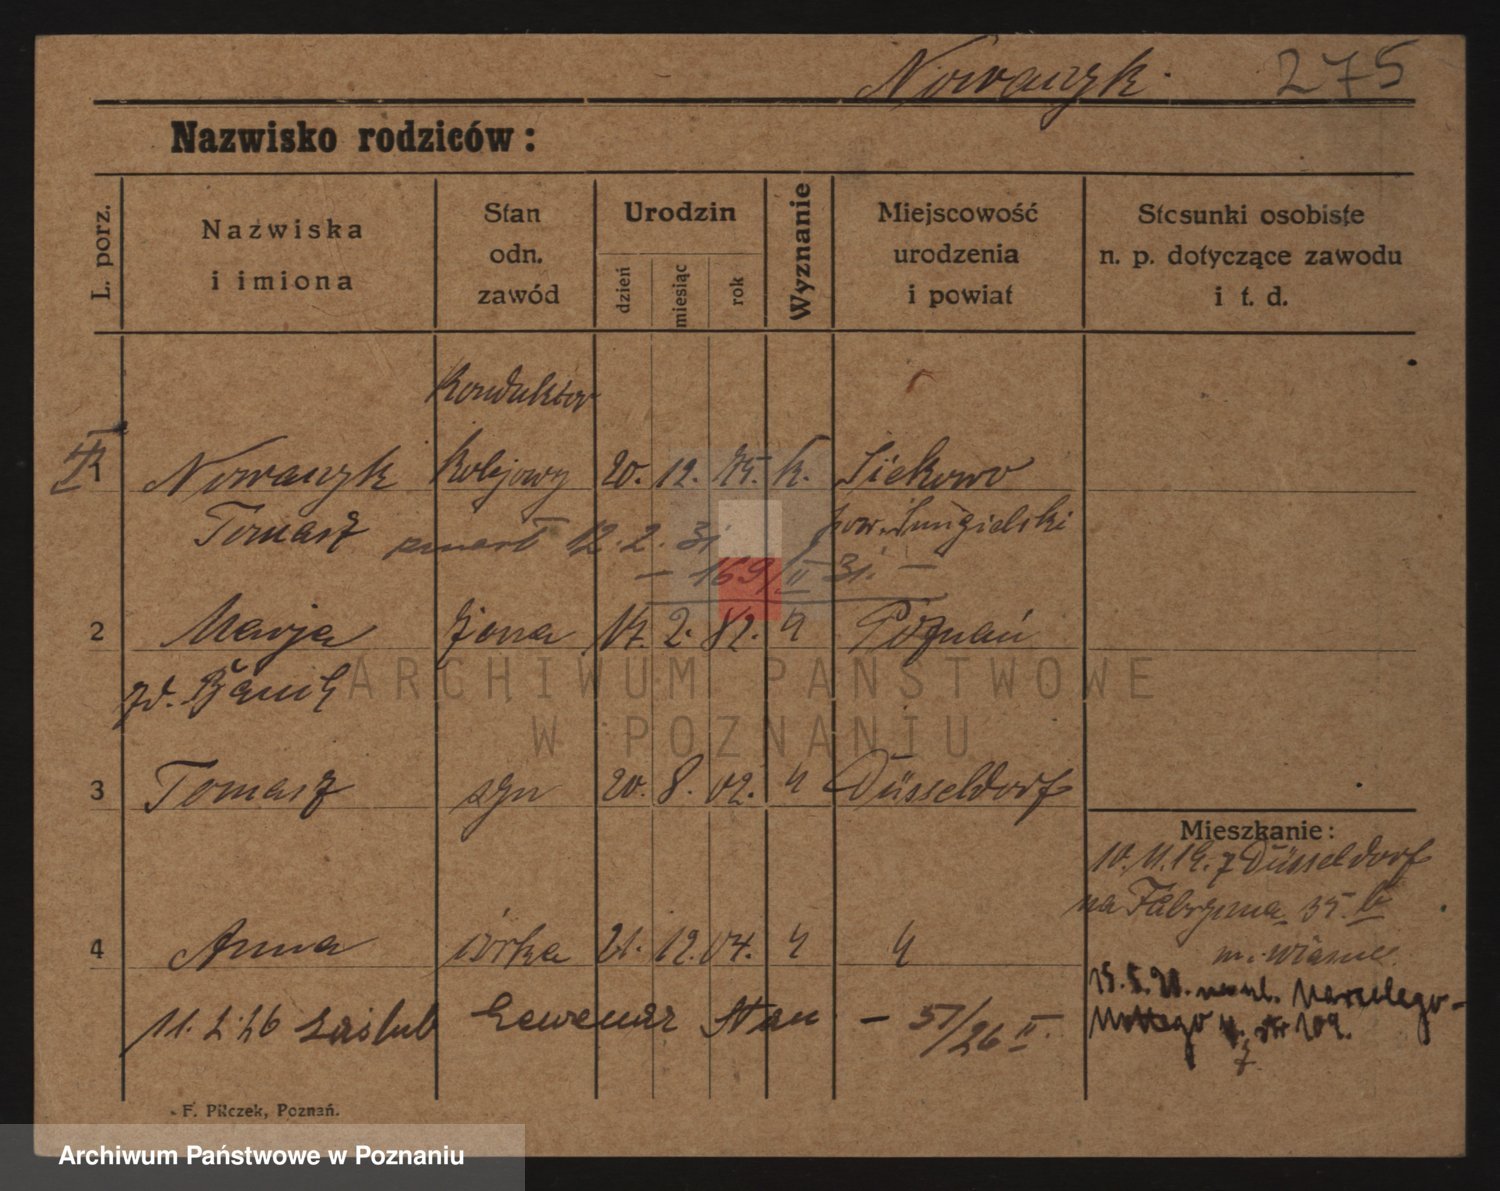 Nowaczyk. 275
Nazwisko rodziców:
L. porz.
Nazwiska
i imiona
Stan
odn.
zawód
Urodzin
dzień
miesiąc
rok
Wyznanie
Miejscowość
urodzenia
i powiat
Stosunki osobiste
n. p. dotyczące zawodu
i t. d.
Konduktor
Nowaczyk kolejowy 20. 12. 75. k. Siekowo
Tomasz zmarł 12. 2. 31. pow. Śmigielski
— 169/II 31. —
2 Marja żona 17. 2. 82. " Poznań
zd.
3 Tomasz syn 20. 8. 02. " Düsseldorf
Mieszkanie:
10. 11. 19. z Düsseldorf
na Fabryczna 35. b
4 Anna córka 21. 12. 04. " "
11. 2. 26 zaślub Stan – 57/26 II.
15. 5. 20. na ul. Marcelego-
Mottego str 109.
F. Pilczek, Poznań.
ARCHIWUM PAŃSTWOWE
W POZNANIU
Archiwum Państwowe w Poznaniu